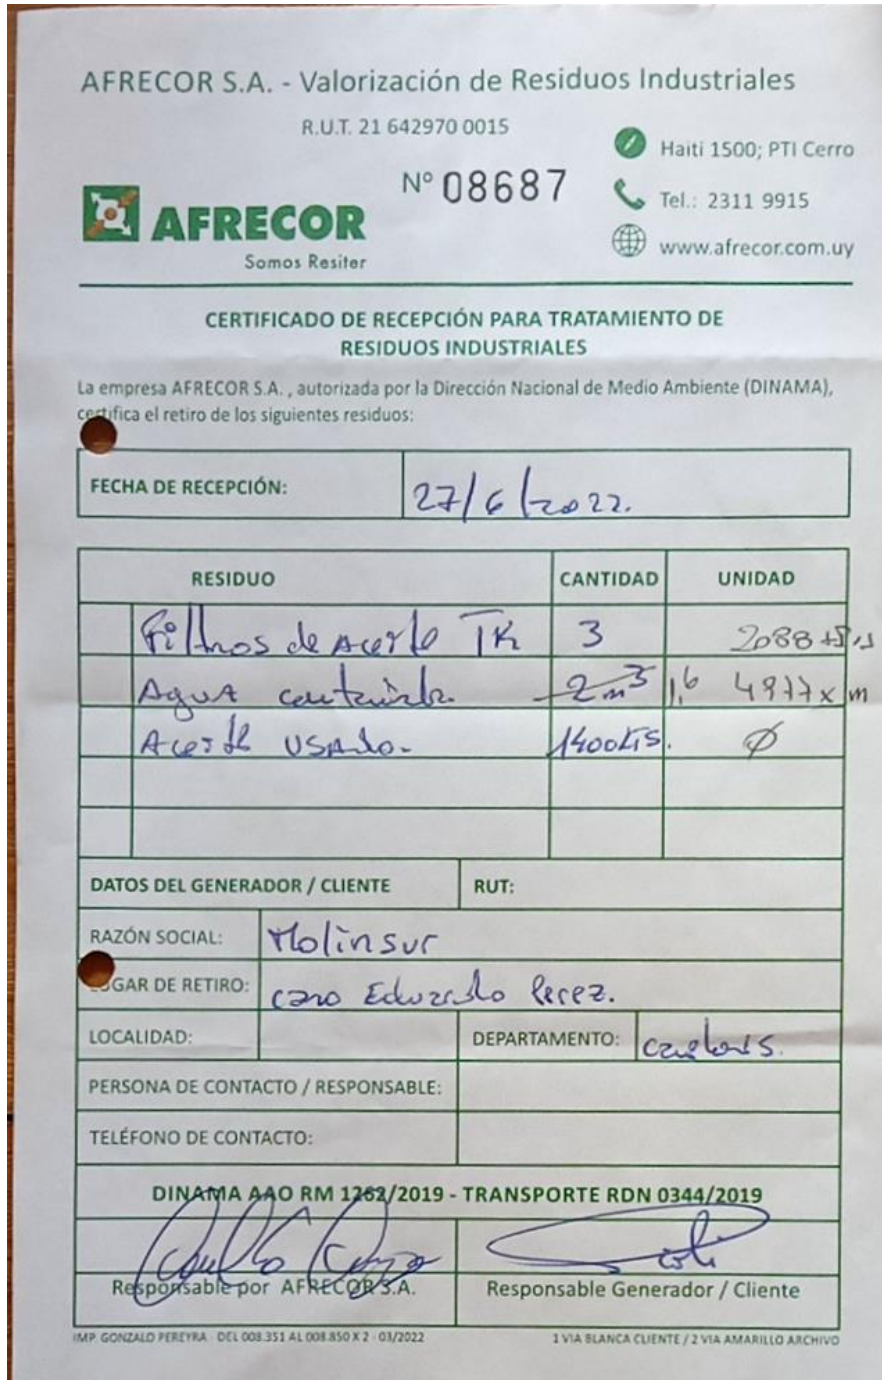 AFRECOR S.A. - Valorización de Residuos Industriales
R.U.T. 21 642970 0015
Haiti 1500; PTI Cerro
Nº 08687
Tel.: 2311 9915
AFRECOR
www.afrecor.com.uy
Somos Resiter
CERTIFICADO DE RECEPCIÓN PARA TRATAMIENTO DE
RESIDUOS INDUSTRIALES
La empresa AFRECOR S.A. , autorizada por la Dirección Nacional de Medio Ambiente (DINAMA),
certifica el retiro de los siguientes residuos:
FECHA DE RECEPCIÓN: 27/6/2022.
RESIDUO CANTIDAD UNIDAD
Filtros de Aceite TK 3 2088
Agua 2m3 1,6 4977 x m
Aceite USAdo. 1400 Ø
DATOS DEL GENERADOR / CLIENTE RUT:
RAZÓN SOCIAL: Molinsur
LUGAR DE RETIRO: Cano Eduardo Perez.
LOCALIDAD: DEPARTAMENTO:
PERSONA DE CONTACTO / RESPONSABLE:
TELÉFONO DE CONTACTO:
DINAMA AAO RM 1262/2019 - TRANSPORTE RDN 0344/2019
Responsable por AFRECOR S.A. Responsable Generador / Cliente
IMP. GONZALO PEREYRA - DEL 008.351 AL 008.850 X 2 - 03/2022 1 VIA BLANCA CLIENTE / 2 VIA AMARILLO ARCHIVO